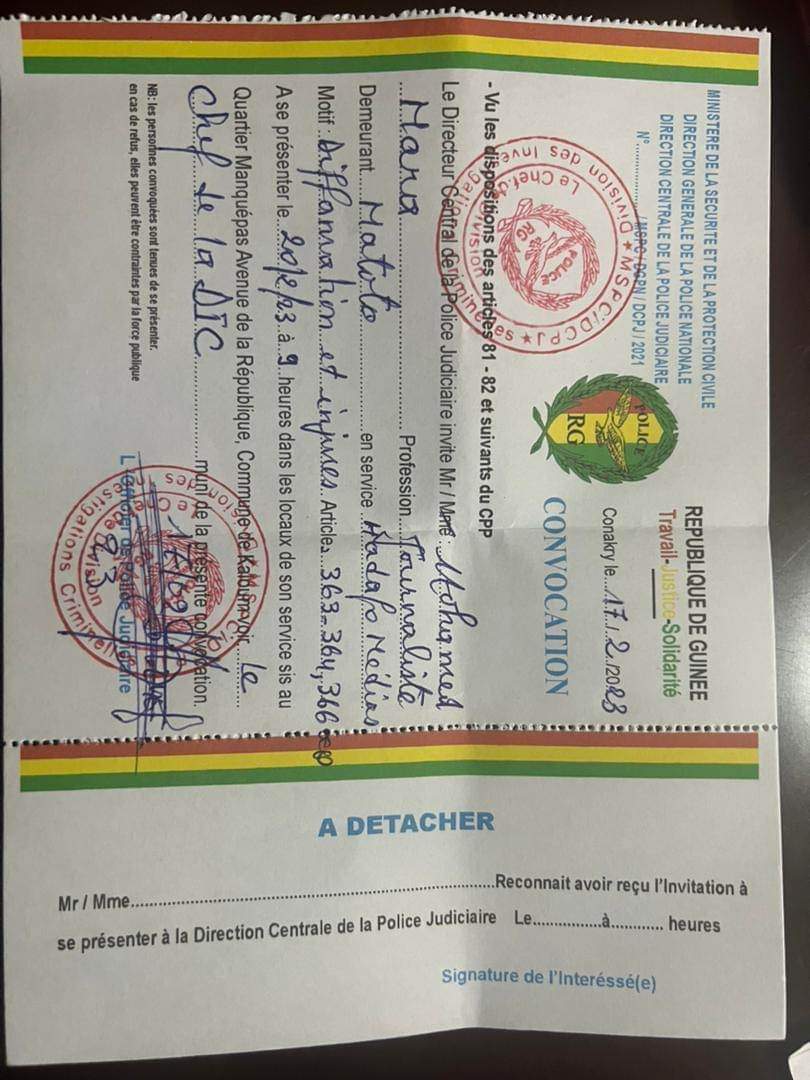 MINISTERE DE LA SECURITE ET DE LA PROTECTION CIVILE
DIRECTION GENERALE DE LA POLICE NATIONALE
DIRECTION CENTRALE DE LA POLICE JUDICIAIRE
N°................/ MSPC / DGPN / DCPJ / 2021
REPUBLIQUE DE GUINEE
Travail-Justice-Solidarité
POLICE
RG
Conakry le...17./.2./2023
CONVOCATION
- Vu les dispositions des articles 81 - 82 et suivants du CPP
Le Directeur Central de la Police Judiciaire invite Mr / Mme : Mohamed
Mara Profession Journaliste
Demeurant Matoto en service Hadafo Médias
Motif : Diffamation et injures Articles 363-364, 366
A se présenter le 20/2/23 à 9 heures dans les locaux de son service sis au
Quartier Manquépas Avenue de la République, Commune de Kaloum voir le
chef de la DIC muni de la présente convocation.
L'Officier de Police Judiciaire
NB: les personnes convoquées sont tenues de se présenter.
en cas de refus, elles peuvent être contraintes par la force publique
A DETACHER
Mr / Mme..................................................Reconnait avoir reçu l'Invitation à
se présenter à la Direction Centrale de la Police Judiciaire Le...............à............ heures
Signature de l'Interéssé(e)